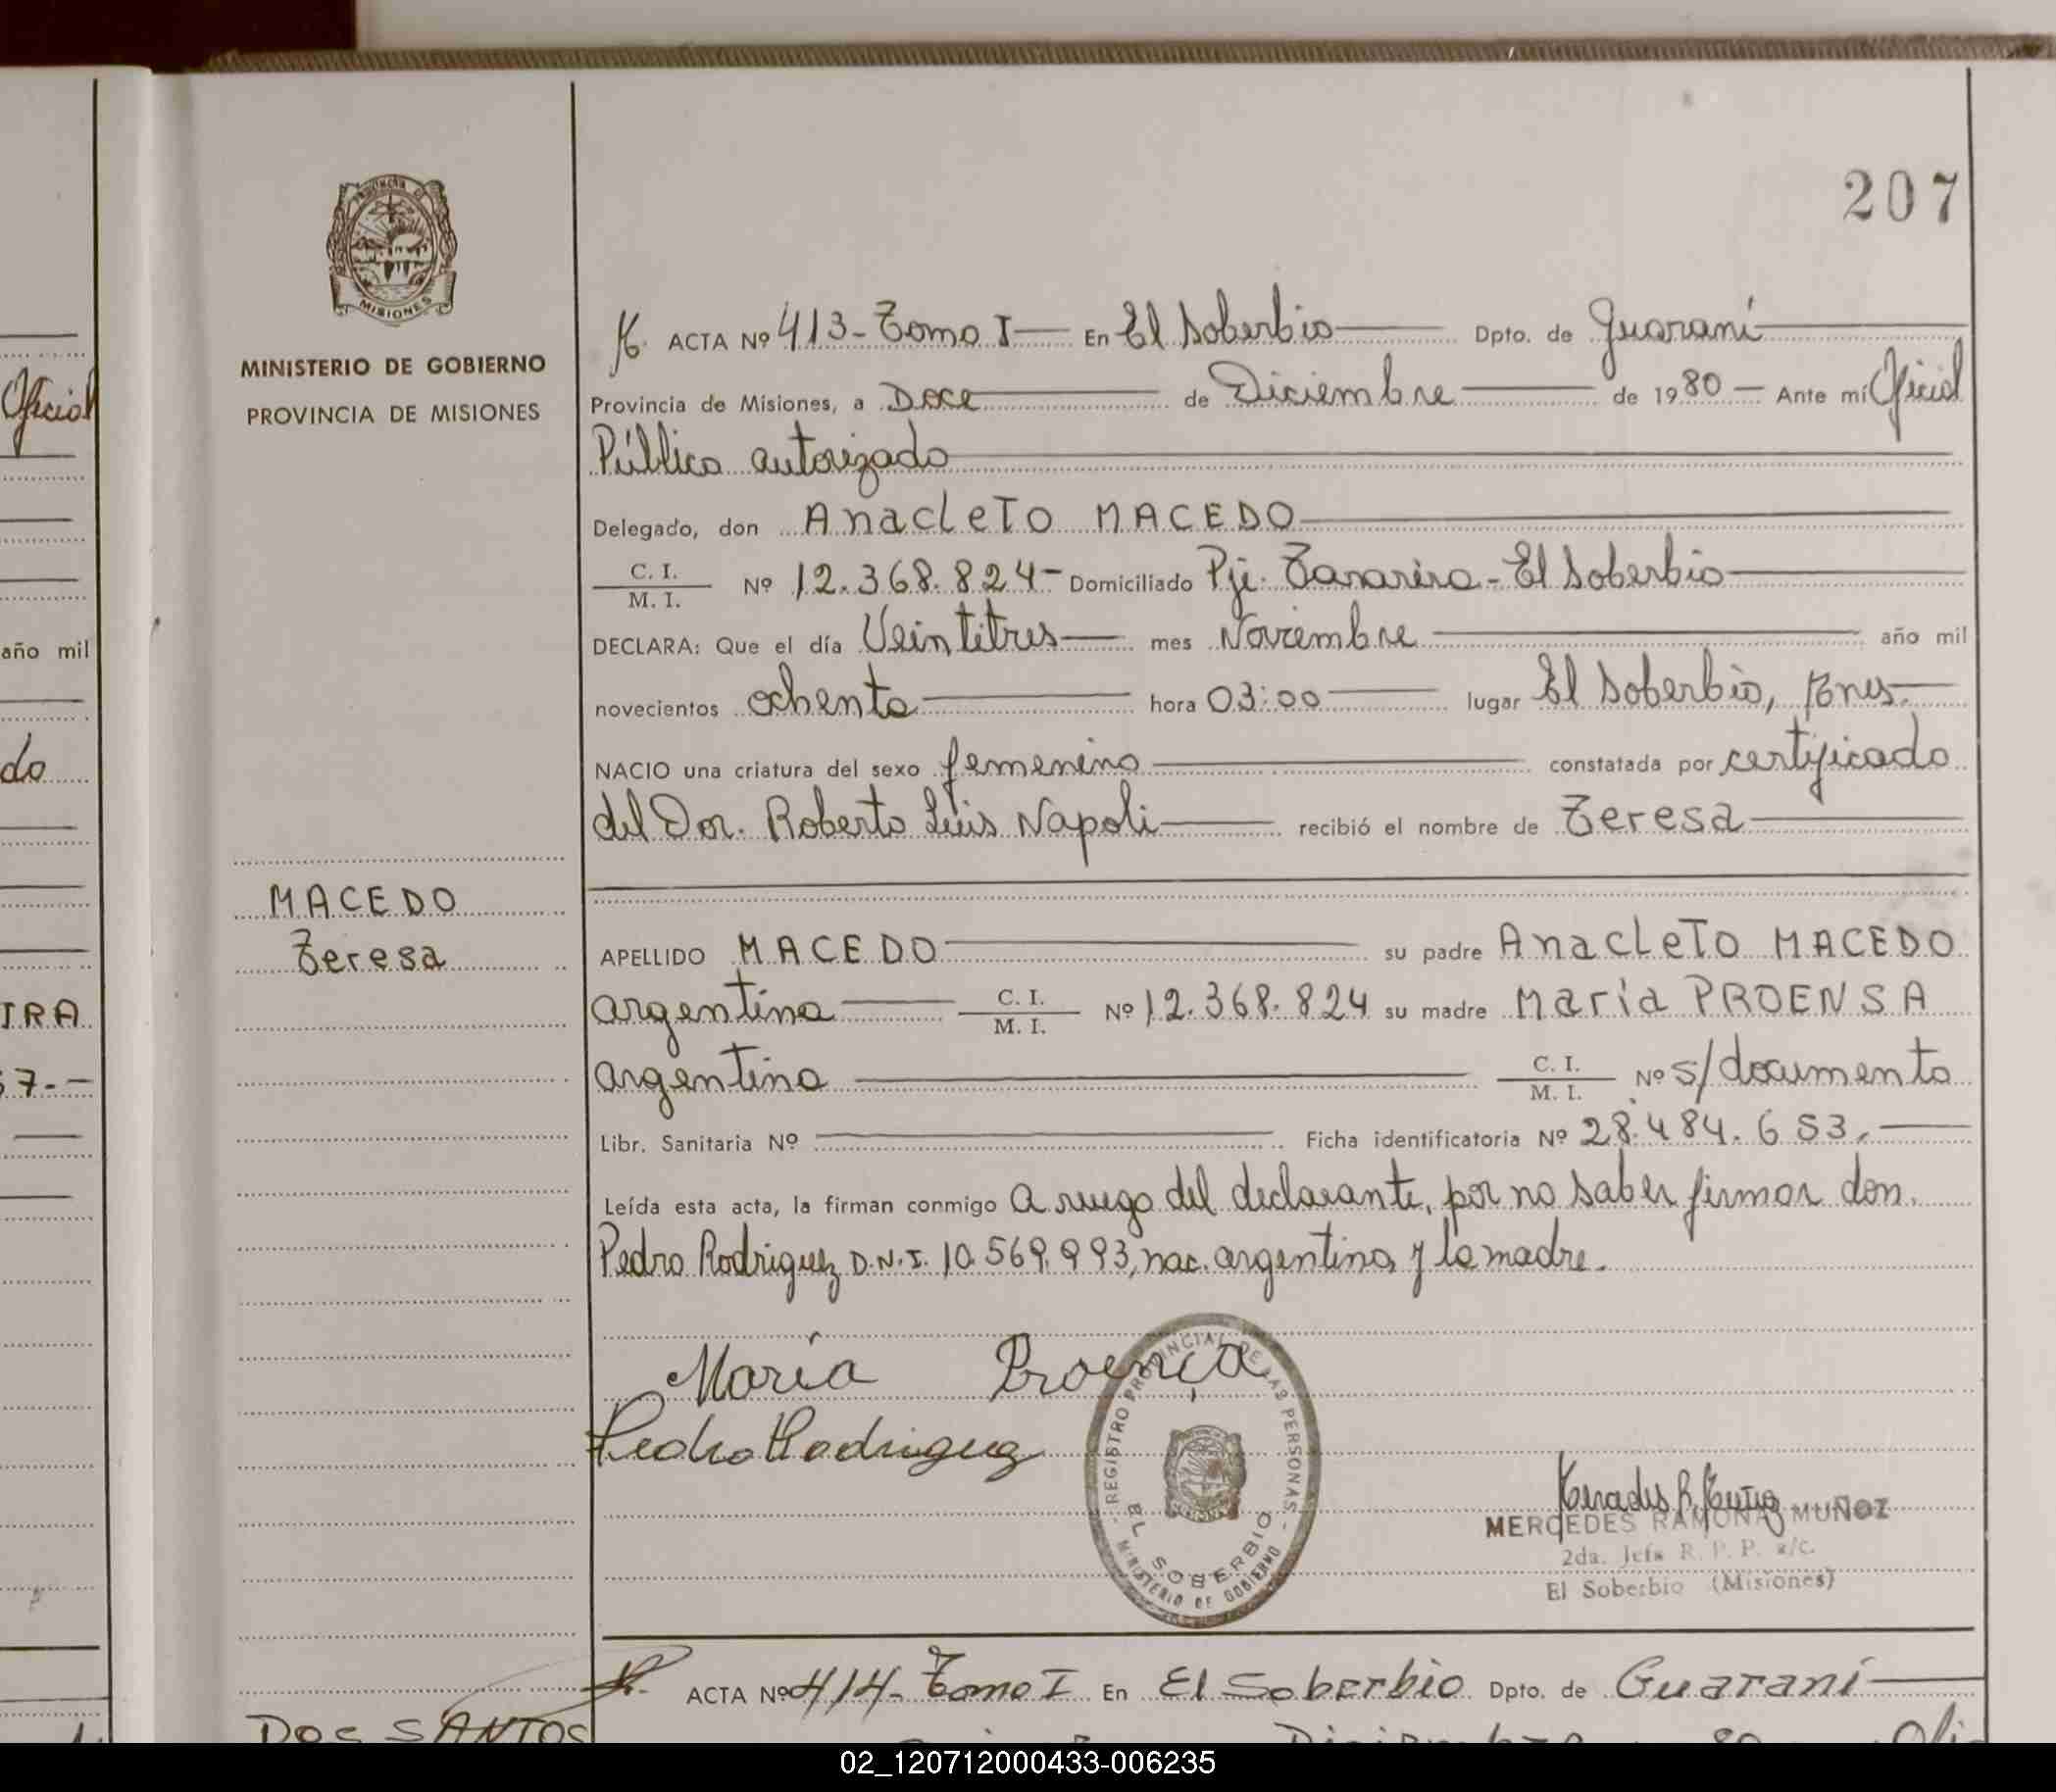 207
PROVINCIA DE
MISIONES
MINISTERIO DE GOBIERNO
PROVINCIA DE MISIONES
ACTA Nº 413- Tomo I En El Soberbio Dpto. de Guaraní
Provincia de Misiones, a Doce de Diciembre de 1980 Ante mí Oficial
Público autorizado
Delegado, don Anacleto MACEDO
C. I. / M. I. Nº 12.368.824- Domiciliado Pje. El Soberbio
DECLARA: Que el día Veintitres mes Noviembre año mil
novecientos ochenta hora 03:00 lugar El Soberbio, Mnes.
NACIO una criatura del sexo femenino constatada por certificado
del Dor. Roberto Luis Napoli recibió el nombre de Teresa
MACEDO
Teresa
APELLIDO MACEDO su padre Anacleto MACEDO
argentino C. I. / M. I. Nº 12.368.824 su madre María PROENSA
argentina C. I. / M. I. Nº s/documento
Libr. Sanitaria Nº Ficha identificatoria Nº 28.484.653.
Leída esta acta, la firman conmigo a ruego del declarante, por no saber firmar don.
Pedro Rodriguez D.N.I. 10.569.993, nac. argentina y la madre.
María Proença
Pedro Rodriguez
REGISTRO PROVINCIAL DE LAS PERSONAS
EL SOBERBIO
MINISTERIO DE GOBIERNO
MERCEDES RAMONA MUÑOZ
2da. Jefa R. P. P. a/c.
El Soberbio (Misiones)
ACTA Nº 414- Tomo I En El Soberbio Dpto. de Guaraní
DOS SANTOS
Oficial
año mil
do
TRA
57.-
02_120712000433-006235